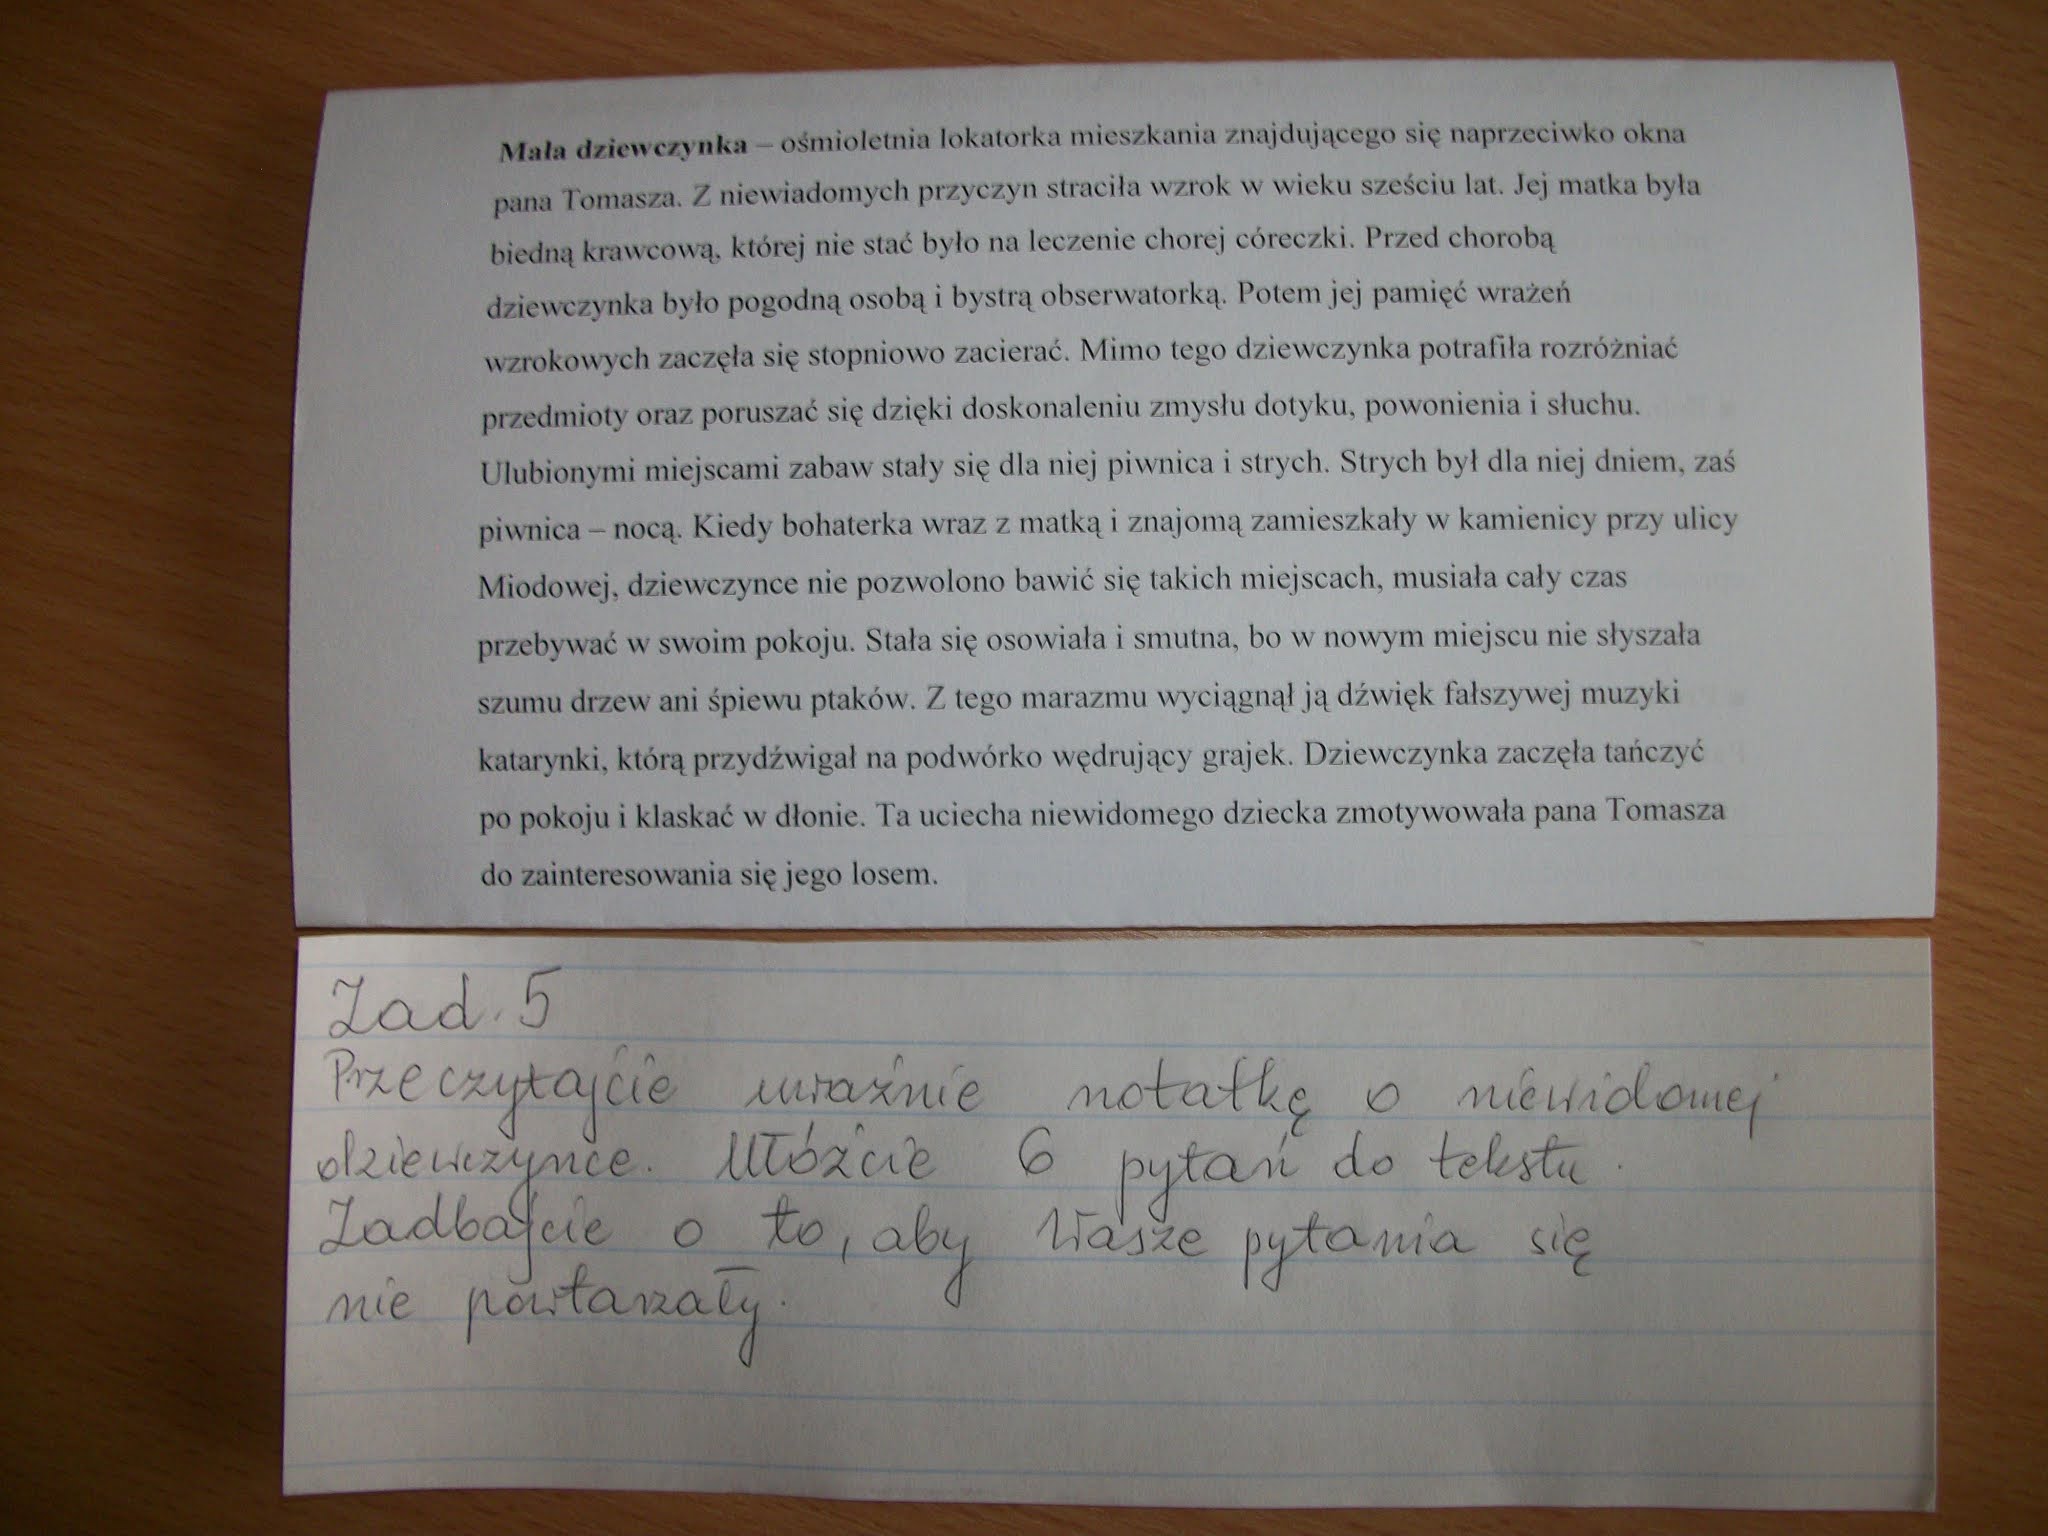 Mała dziewczynka – ośmioletnia lokatorka mieszkania znajdującego się naprzeciwko okna
pana Tomasza. Z niewiadomych przyczyn straciła wzrok w wieku sześciu lat. Jej matka była
biedną krawcową, której nie stać było na leczenie chorej córeczki. Przed chorobą
dziewczynka było pogodną osobą i bystrą obserwatorką. Potem jej pamięć wrażeń
wzrokowych zaczęła się stopniowo zacierać. Mimo tego dziewczynka potrafiła rozróżniać
przedmioty oraz poruszać się dzięki doskonaleniu zmysłu dotyku, powonienia i słuchu.
Ulubionymi miejscami zabaw stały się dla niej piwnica i strych. Strych był dla niej dniem, zaś
piwnica – nocą. Kiedy bohaterka wraz z matką i znajomą zamieszkały w kamienicy przy ulicy
Miodowej, dziewczynce nie pozwolono bawić się takich miejscach, musiała cały czas
przebywać w swoim pokoju. Stała się osowiała i smutna, bo w nowym miejscu nie słyszała
szumu drzew ani śpiewu ptaków. Z tego marazmu wyciągnął ją dźwięk fałszywej muzyki
katarynki, którą przydźwigał na podwórko wędrujący grajek. Dziewczynka zaczęła tańczyć
po pokoju i klaskać w dłonie. Ta uciecha niewidomego dziecka zmotywowała pana Tomasza
do zainteresowania się jego losem.
Zad. 5
Przeczytajcie uważnie notatkę o niewidomej
dziewczynce. Ułóżcie 6 pytań do tekstu.
Zadbajcie o to, aby Wasze pytania się
nie powtarzały.